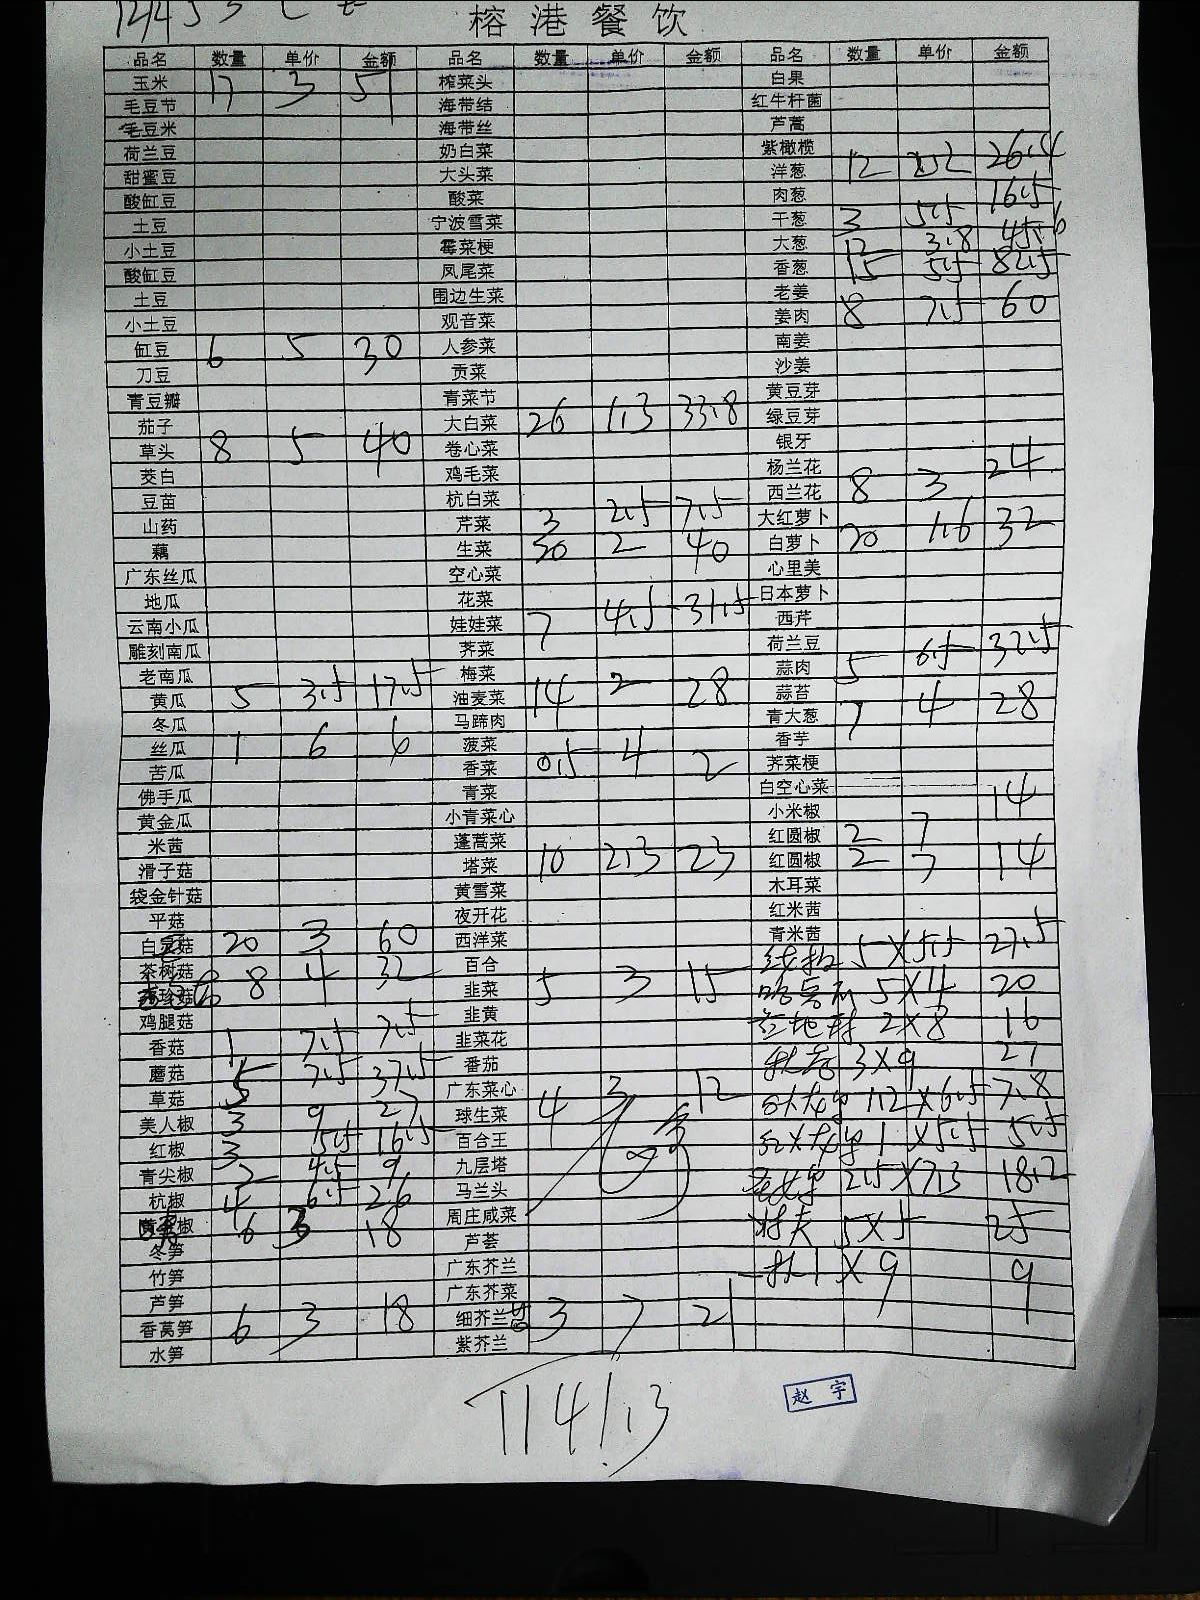 榕港餐饮
品名 数量 单价 金额 品名 数量 单价 金额 品名 数量 单价 金额
玉米 17 3 51 榨菜头 白果
毛豆节 海带结 红牛杆菌
毛豆米 海带丝 芦蒿
荷兰豆 奶白菜 紫橄榄
甜蜜豆 大头菜 洋葱 12 2.2 26.4
酸缸豆 酸菜 肉葱
土豆 宁波雪菜 干葱 3 5.5 16.5
小土豆 霉菜梗 大葱 12 3.8 45.6
酸缸豆 凤尾菜 香葱 15 5.5 82.5
土豆 围边生菜 老姜
小土豆 观音菜 姜肉 8 7.5 60
缸豆 6 5 30 人参菜 南姜
刀豆 贡菜 沙姜
青豆瓣 青菜节 黄豆芽
茄子 大白菜 26 1.3 33.8 绿豆芽
草头 8 5 40 卷心菜 银牙
茭白 鸡毛菜 杨兰花
豆苗 杭白菜 西兰花 8 3 24
山药 芹菜 3 2.5 7.5 大红萝卜
藕 生菜 20 2 40 白萝卜 20 1.6 32
广东丝瓜 空心菜 心里美
地瓜 花菜 日本萝卜
云南小瓜 娃娃菜 7 4.5 31.5 西芹
雕刻南瓜 荠菜 荷兰豆
老南瓜 梅菜 蒜肉 5 6.5 32.5
黄瓜 5 3.5 17.5 油麦菜 14 2 28 蒜苔
冬瓜 马蹄肉 青大葱 7 4 28
丝瓜 1 6 6 菠菜 香芋
苦瓜 香菜 0.5 4 2 荠菜梗
佛手瓜 青菜 白空心菜
黄金瓜 小青菜心 小米椒
米茜 蓬蒿菜 红圆椒 2 7 14
滑子菇 塔菜 10 2.3 23 红圆椒 2 7 14
袋金针菇 黄雪菜 木耳菜
平菇 夜开花 红米茜
20 3 60 西洋菜 青米茜
茶树菇 8 4 32 百合 5×5.5 27.5
韭菜 5 3 15 5×4 20
鸡腿菇 韭黄 2×8 16
香菇 1 7.5 7.5 韭菜花
蘑菇 5 7.5 37.5 番茄 3×9 27
草菇 广东菜心 白火龙果 1.2×6.5 7.8
美人椒 3 9 27 球生菜 4 3 12 红火龙果 1×5.5 5.5
红椒 3 5.5 16.5 百合王
青尖椒 2 4.5 9 九层塔 2.5×7.3 18.2
杭椒 4 6.5 26 马兰头
6 3 18 周庄咸菜 5×5 25
冬笋 芦荟
竹笋 广东芥兰 1×9 9
芦笋 广东芥菜
香莴笋 6 3 18 细芥兰 3 7 21
水笋 紫芥兰
T1141.3
赵宇